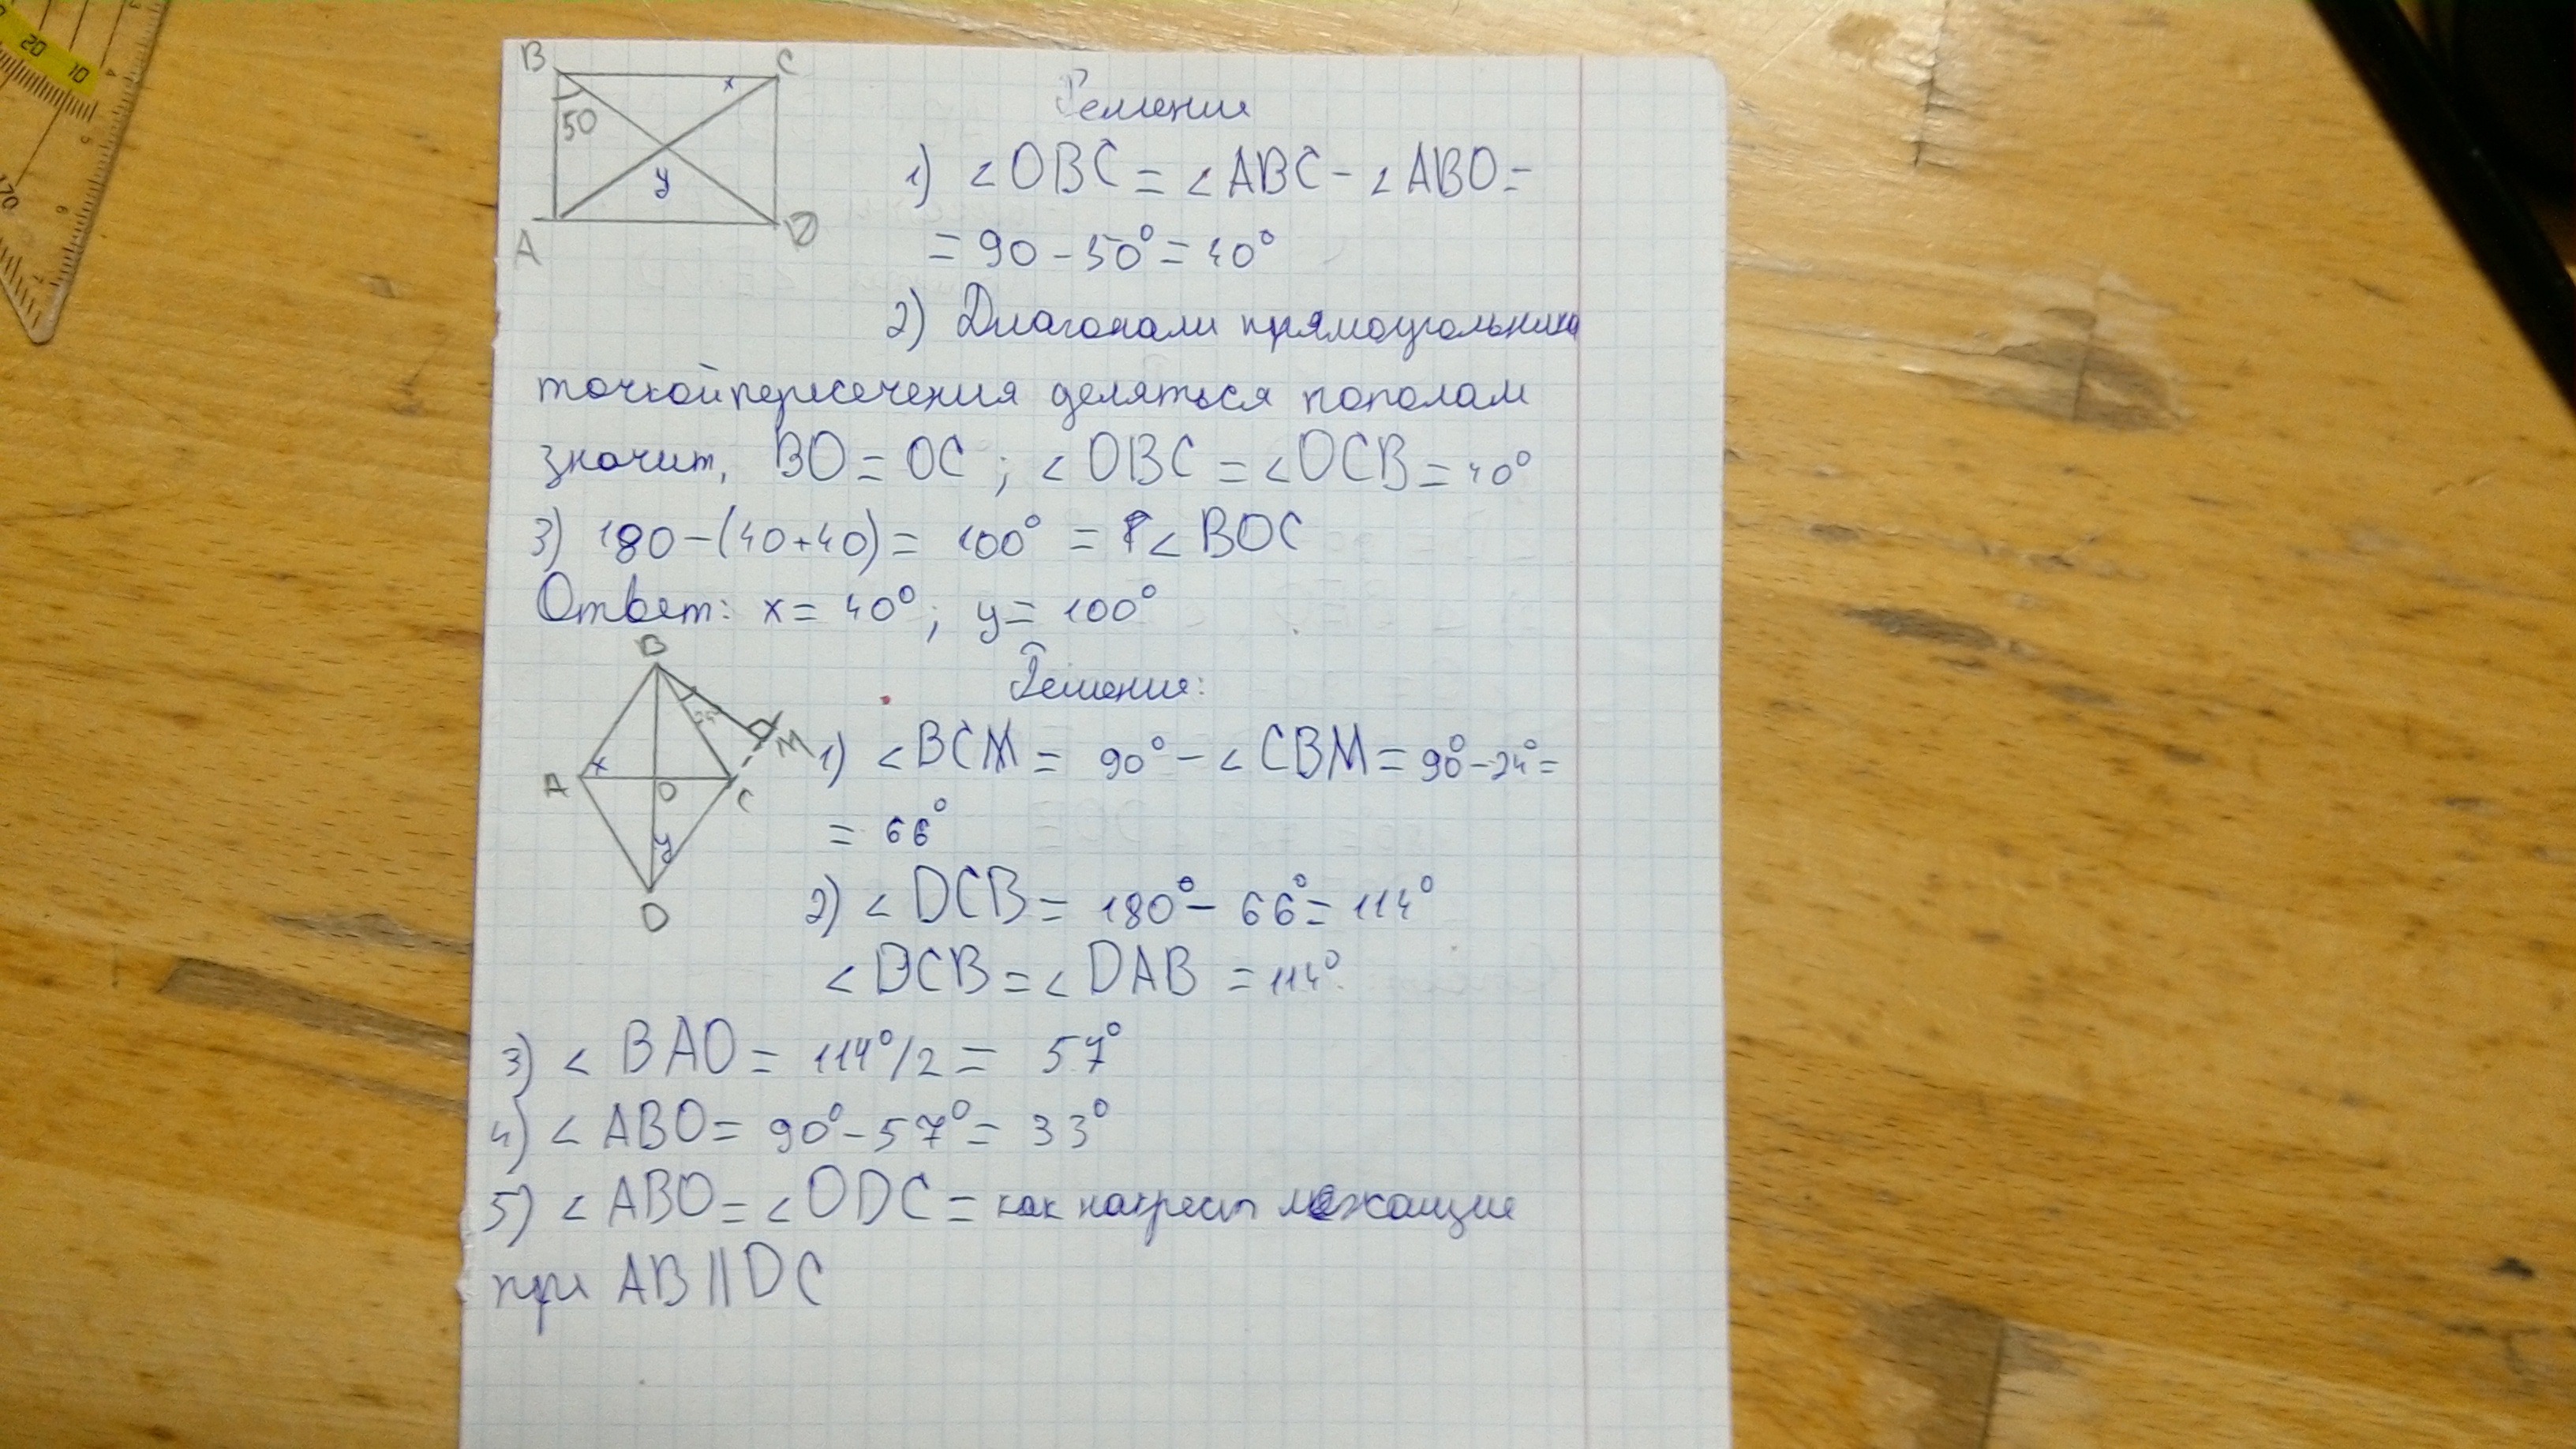 20 10
170
4
5
6
7
B C
x
50
y
A D
Решение
1) ∠OBC = ∠ABC - ∠ABO =
= 90 - 50° = 40°
2) Диагонали прямоугольника
точкой пересечения деляться пополам
значит, BO = OC ; ∠OBC = ∠OCB = 40°
3) 180 - (40+40) = 100° = ∠ BOC
Ответ: x = 40° ; y = 100°
B
24°
M
x
A O C
y
D
Решение:
1) ∠BCM = 90° - ∠CBM = 90° - 24° =
= 66°
2) ∠DCB = 180° - 66° = 114°
∠DCB = ∠DAB = 114°
3) ∠ BAO = 114°/2 = 57°
4) ∠ ABO = 90° - 57° = 33°
5) ∠ ABO = ∠ODC = как накрест лежащие
при AB || DC